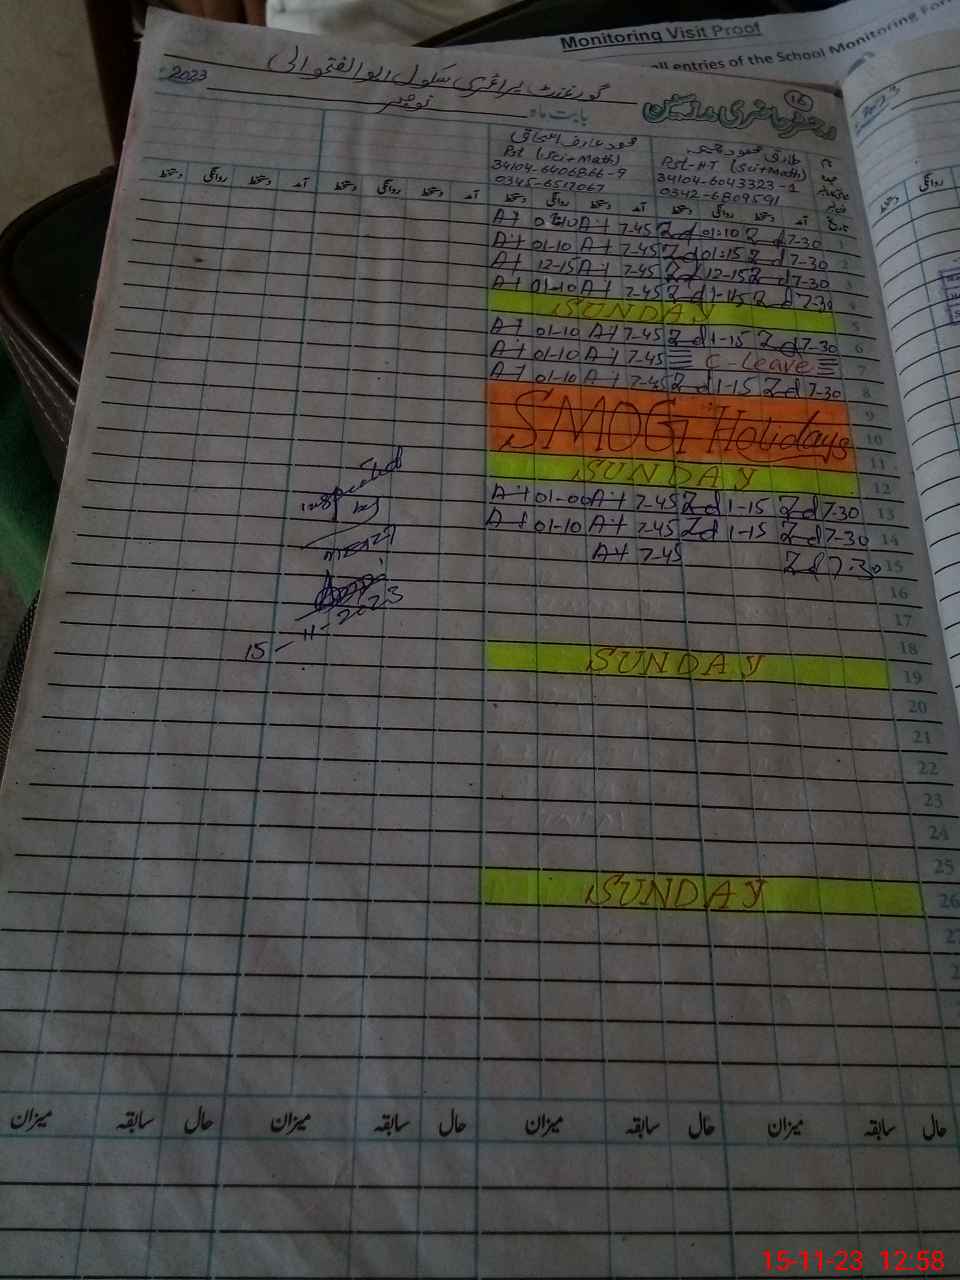 Monitoring Visit Proof
all entries of the School Monitoring For
گورنمنٹ پرائمری سکول ابوالفتحوالی
2023
بابت ماہ نومبر
رجسٹر حاضری مدرسین
16
محمد عارف اسحاق
Pst (Sci+Math)
34104-6406866-9
0345-6517067
طارق محمود
Pst-HT (Sci+Math)
34104-6043323-1
0342-6809591
دستخط روانگی دستخط آمد دستخط روانگی دستخط آمد دستخط روانگی دستخط آمد دستخط روانگی دستخط آمد تاریخ
01:10 7-45 01:10 7-30 1
01-10 7-45 01:15 7-30 2
12-15 7-45 12-15 7-30 3
01-10 7-45 1-15 7-30 4
SUNDAY 5
01-10 7-45 1-15 7-30 6
01-10 7-45 C-Leave 7
01-10 7-45 1-15 7-30 8
SMOG Holidays
9
10
11
SUNDAY 12
01-00 7-45 1-15 7-30 13
01-10 7-45 1-15 7-30 14
7-45 7-30 15
inspected
by
15-11-2023
16
17
18
SUNDAY 19
20
21
22
23
24
25
SUNDAY 26
27
حال سابقہ میزان حال سابقہ میزان حال سابقہ میزان حال سابقہ میزان
15-11-23 12:58